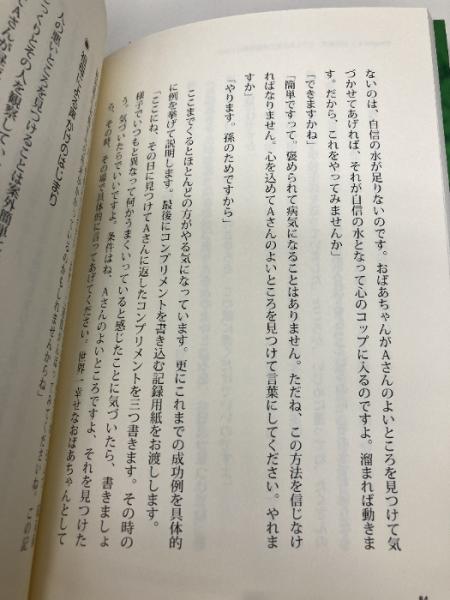 ないのは、自信の水が足りないのです。おばあちゃんがAさんのよいところを見つけて気
づかせてあげれば、それが自信の水となって心のコップに入るのですよ。溜まれば動きま
す。だから、これをやってみませんか」
「できますかね」
「簡単ですって。褒められて病気になることはありません。ただね、この方法を信じなけ
ればなりません。心を込めてAさんのよいところを見つけて言葉にしてください。やれま
すか」
「やります。孫のためですから」
ここまでくるとほとんどの方がやる気になっています。更にこれまでの成功例を具体的
に例を挙げて説明します。最後にコンプリメントを書き込む記録用紙をお渡しします。
「ここにね、その日に見つけてAさんに返したコンプリメントを三つ書きます。その時の
様子でいつもと異なって何かうまくいっていると感じたことに気づいたら、書きましょ
う。気づいたらでいいですよ。条件はね、Aさんのよいところですよ、それを見つけた
ら、その時、その場で具体的に言ってあげてください。世界一幸せなおばあちゃんとして
この記
人の悪いところを見つけることは案外簡単で
っくりとその人を観察してい
84